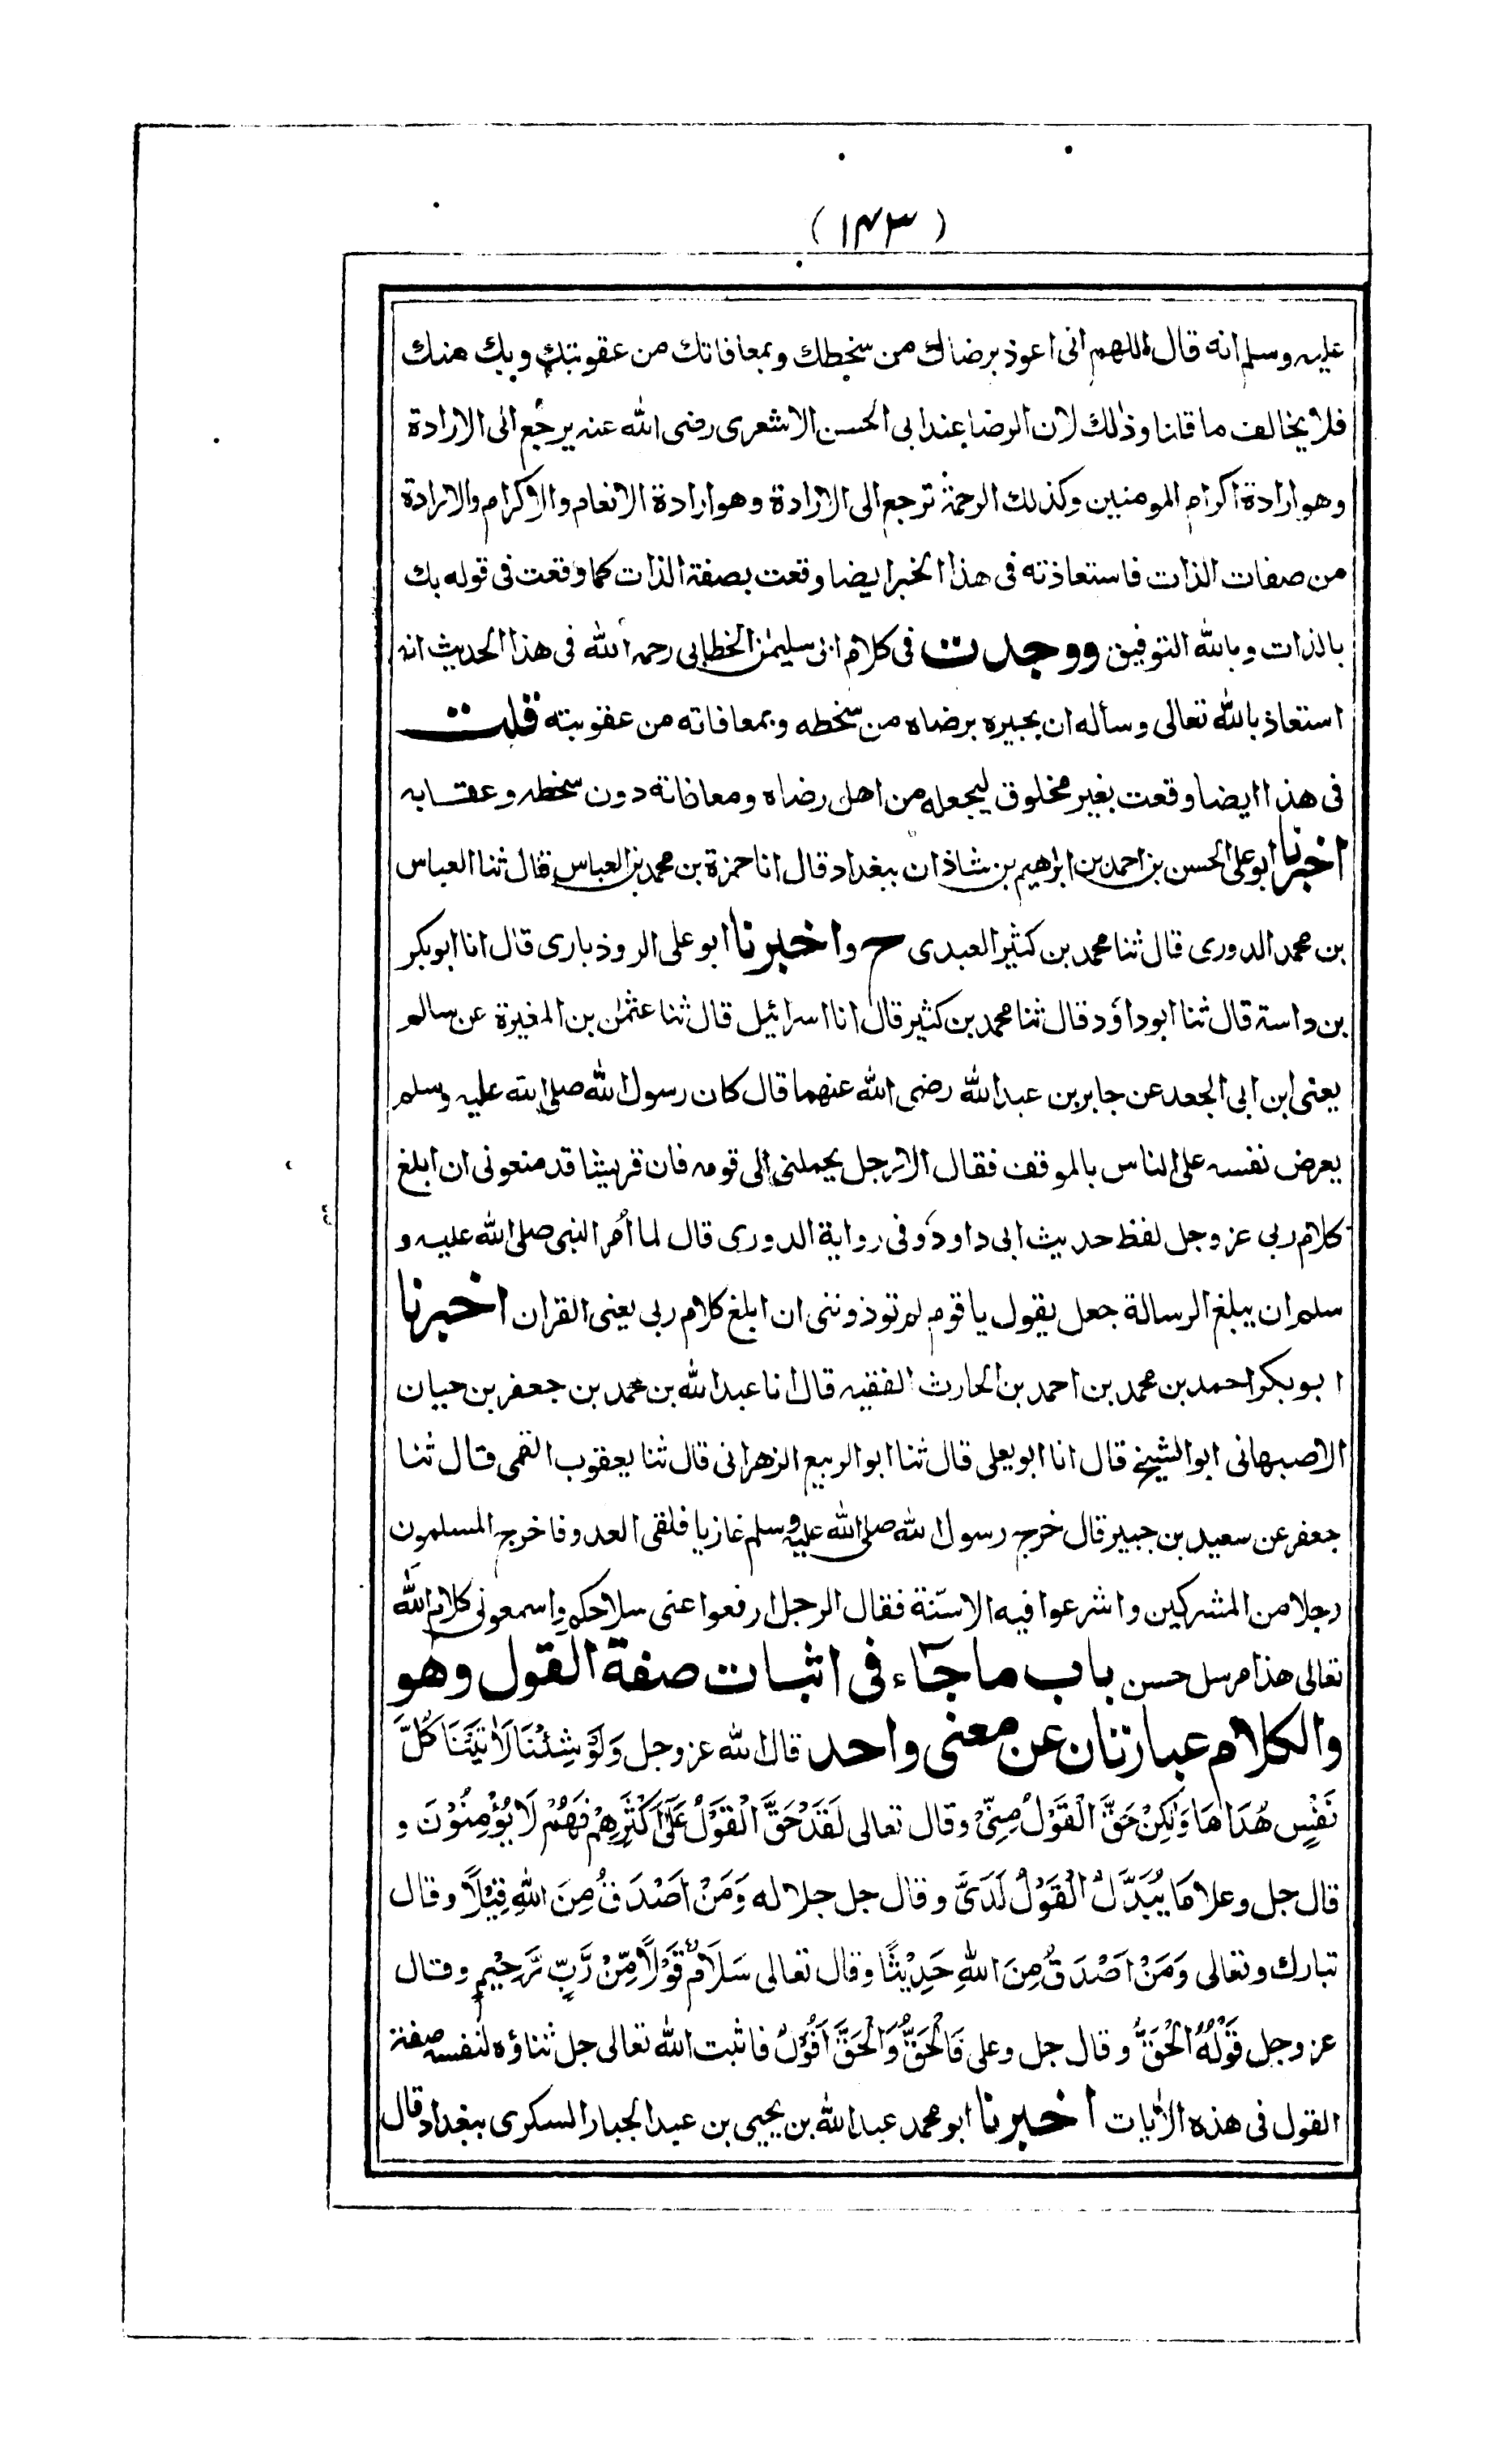 (۱۴۳)
عليه وسلم انه قال اللهم انى اعوذ برضاك من سخطك وبمعافاتك من عقوبتك وبك منك
فلا يخالف ما قلنا وذلك لان الرضا عند ابى الحسن الاشعرى رضى الله عنه يرجع الى الارادة
وهو ارادة اكرام المومنين وكذلك الرحمة ترجع الى الارادة وهو ارادة الانعام والاكرام والارادة
من صفات الذات فاستعاذته فى هذا الخبر ايضا وقعت بصفة الذات كما وقعت فى قوله بك
بالذات وبالله التوفيق ووجدت فى كلام ابى سليمٰن الخطابى رحمه الله فى هذا الحديث انه
استعاذ بالله تعالى وسأله ان يجيره برضاه من سخطه وبمعافاته من عقوبته قلت
فى هذا ايضا وقعت بغير مخلوق ليجعله من اهل رضاه ومعافاته دون سخطه وعقابه
اخبرنا ابو على الحسن بن احمد بن ابراهيم بن شاذان ببغداد قال انا حمزة بن محمد بن العباس قال ثنا العباس
بن محمد الدورى قال ثنا محمد بن كثير العبدى ح واخبرنا ابو على الروذبارى قال انا ابو بكر
بن داسة قال ثنا ابو داؤد قال ثنا محمد بن كثير قال انا اسرائيل قال ثنا عثمٰن بن المغيرة عن سالم
يعنى ابن ابى الجعد عن جابر بن عبد الله رضى الله عنهما قال كان رسول الله صلى الله عليه وسلم
يعرض نفسه على الناس بالموقف فقال الا رجل يحملنى الى قومه فان قريشا قد منعونى ان ابلغ
كلام ربى عز وجل لفظ حديث ابى داود وفى رواية الدورى قال لما اُمر النبى صلى الله عليه و
سلم ان يبلغ الرسالة جعل يقول يا قوم لم توذوننى ان ابلغ كلام ربى يعنى القران اخبرنا
ابو بكر احمد بن محمد بن احمد بن الحارث الفقيه قال انا عبد الله بن محمد بن جعفر بن حيان
الاصبهانى ابو الشيخ قال انا ابو يعلى قال ثنا ابو الربيع الزهرانى قال ثنا يعقوب القمى قال ثنا
جعفر عن سعيد بن جبير قال خرج رسول الله صلى الله عليه وسلم غازيا فلقى العدو فاخرج المسلمون
رجلا من المشركين واشرعوا فيه الاسنّة فقال الرجل ارفعوا عنى سلاحكم واسمعونى كلام الله
تعالى هذا مرسل حسن باب ما جآء فى اثبات صفة القول وهو
والكلام عبارتان عن معنى واحد قال الله عز وجل وَلَوْ شِئْنَا لَاٰتَيْنَا كُلَّ
نَفْسٍ هُدَاهَا وَلٰكِنْ حَقَّ الْقَوْلُ مِنِّىْ وقال تعالى لَقَدْ حَقَّ الْقَوْلُ عَلٰٓى اَكْثَرِهِمْ فَهُمْ لَا يُؤْمِنُوْنَ و
قال جل وعلا مَا يُبَدَّلُ الْقَوْلُ لَدَىَّ وقال جل جلاله وَمَنْ اَصْدَقُ مِنَ اللهِ قِيْلًا وقال
تبارك وتعالى وَمَنْ اَصْدَقُ مِنَ اللهِ حَدِيْثًا وقال تعالى سَلَامٌ قَوْلًا مِّنْ رَّبٍّ رَّحِيْمٍ وقال
عز وجل قَوْلُهُ الْحَقُّ وقال جل وعلى فَالْحَقُّ وَالْحَقَّ اَقُوْلُ فاثبت الله تعالى جل ثناؤه لنفسه صفة
القول فى هذه الاٰيات اخبرنا ابو محمد عبد الله بن يحيى بن عبد الجبار السكرى ببغداد قال